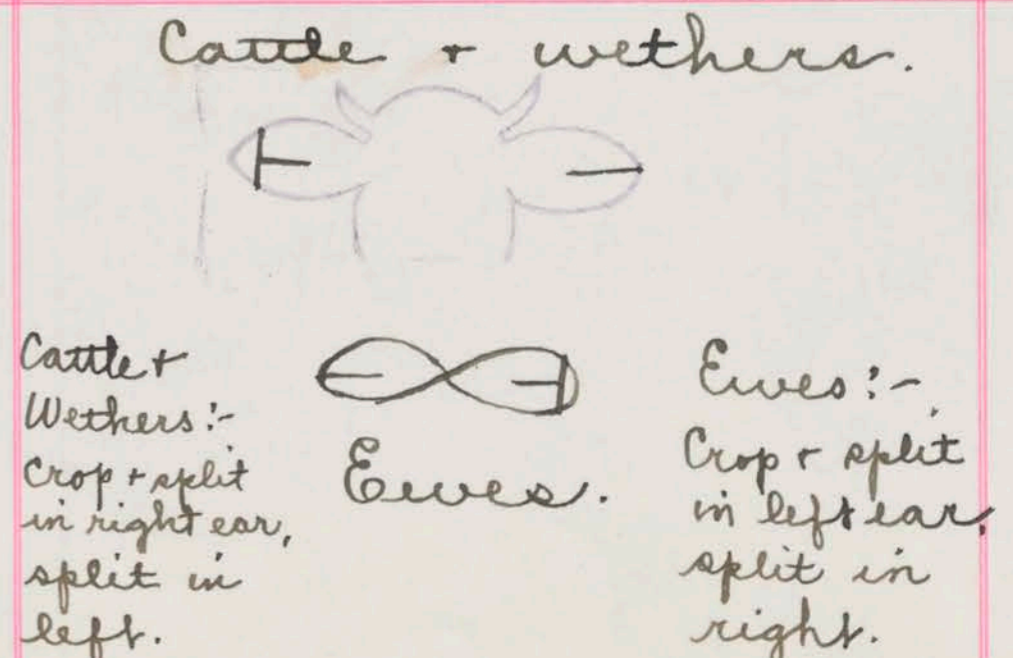 Cattle + wethers.
Cattle +
Wethers:-
Crop + split
in right ear,
split in
left.
Ewes.
Ewes:-
Crop + split
in left ear,
split in
right.